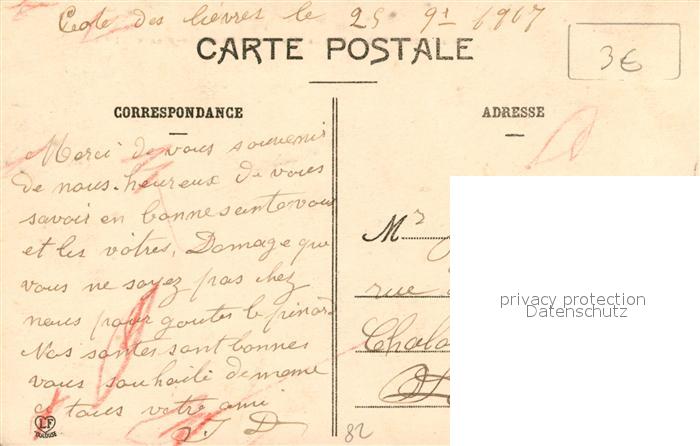 Cote des lièvres le 25 9t 1917
CARTE POSTALE
3€
CORRESPONDANCE
ADRESSE
Merci de vous souvenir
de nous. heureux de vous
savoir en bonne sante vous
et les vôtres, Domage que
vous ne soyez pas chez
nous pour gouter le pinard
Nos santes sont bonnes
vous souhaite de meme
a tous votre ami
J D
Mr
rue
Chalo
privacy protection
Datenschutz
LF
TOULOUSE
82